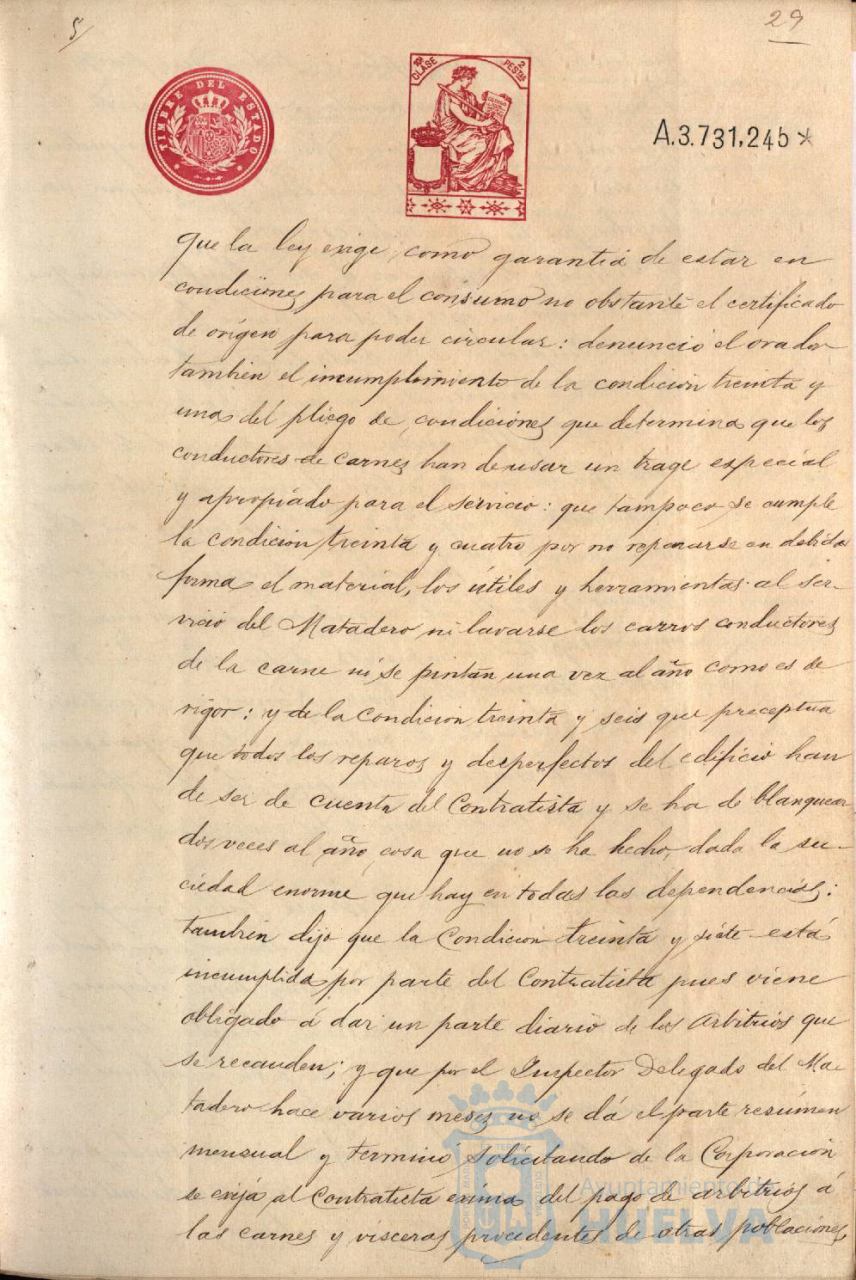 5/
29
TIMBRE DEL ESTADO
CLASE
2 PESTAS
A.3.731,245*
que la ley exige, como garantia de estar en
condiciones para el consumo no obstante el certificado
de origen para poder circular: denunció el orador
tambien el incumplimiento de la condicion treinta y
una del pliego de condiciones que determina que los
conductores de carnes han de usar un trage especial
y apropiado para el servicio: que tampoco se cumple
la condicion treinta y cuatro por no repararse en debida
forma el material, los útiles y herramientas al ser-
vicio del Matadero, ni lavarse los carros conductores
de la carne ni se pintan una vez al año como es de
rigor: y de la condicion treinta y seis que preceptua
que todos los reparos y desperfectos del edificio han
de ser de cuenta del Contratista y se ha de blanquear
dos veces al año, cosa que no se ha hecho, dada la su-
ciedad enorme que hay en todas las dependencias:
tambien dijo que la Condicion treinta y siete está
incumplida por parte del Contratista pues viene
obligado á dar un parte diario de los Arbitrios que
se recauden; y que por el Inspector Delegado del Ma-
tadero hace varios meses no se dá el parte resúmen
mensual y terminó solicitando de la Corporacion
se exija al Contratista exima del pago de arbitrios á
las carnes y visceras procedentes de otras poblaciones,
Ayuntamiento de
HUELVA